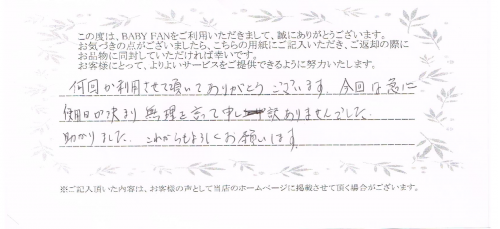 この度は、BABY FANをご利用いただきまして、誠にありがとうございます。
お気づきの点がございましたら、こちらの用紙にご記入いただき、ご返却の際に
お品物に同封していただければ幸いです。
お客様にとって、よりよいサービスをご提供できるように努力いたします。
何回か利用させて頂いてありがとうございます。今回は急に
使用日が決まり無理を言って申し訳ありませんでした。
助かりました。これからもよろしくお願いします。
※ご記入頂いた内容は、お客様の声として当店のホームページに掲載させて頂く場合がございます。